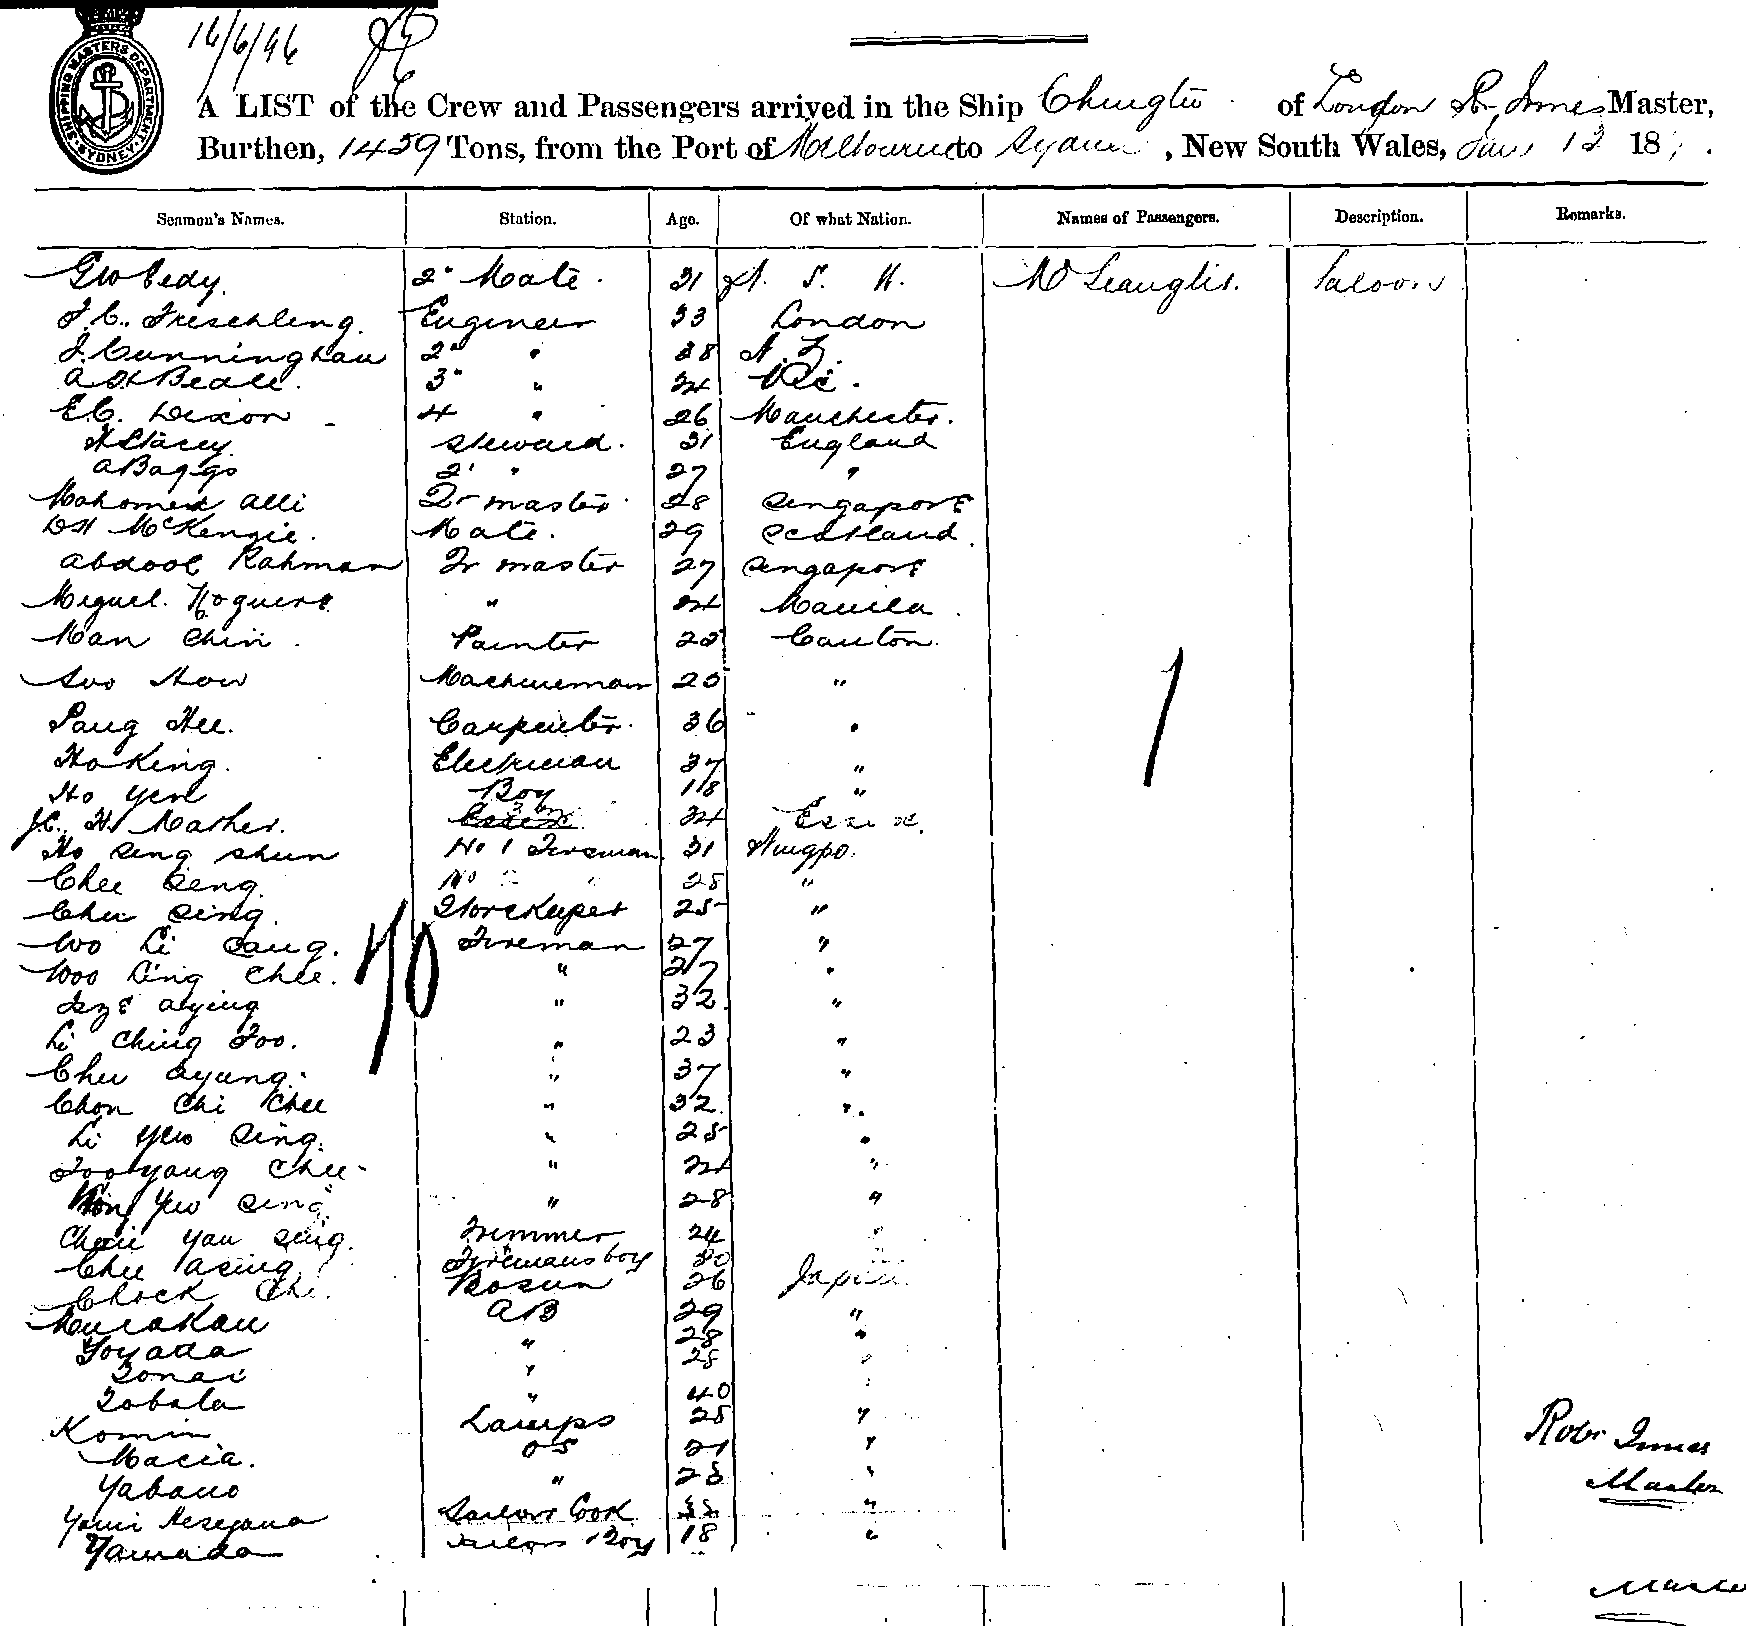 16/6/96
SHIPPING MASTERS DEPARTMENT SYDNEY
A LIST of the Crew and Passengers arrived in the Ship Chingtu of London Innes Master,
Burthen, 1459 Tons, from the Port of Melbourne to Sydney, New South Wales, 13 18
Seamen's Names. Station. Age. Of what Nation. Names of Passengers. Description. Remarks.
Geo Eedy. 2" Mate. 31 N. S. W. Saloon
Engineer 33 London
J. Cunningham 2" " 38 N. Z.
Beale. 3" " 24 Vic.
E.C. Dixon 4 " 26 Manchester.
H Stacey. Steward. 31 England
A Baggs 2' " 27 "
Mahomed Alli Qr master 28 Singapore
DH McKenzie. Mate. 29 Scotland.
Abdool Rahman Qr master 27 Singapore
Miguel Noguera " 24 Manila.
Man Chin. Painter 25 Canton.
How Machineman 25 "
Hee. Carpenter. 36 "
Ho King. 37 "
Ho Yew Boy 18 "
J.C. H. Mather. 24 Essex.
Ho Sing Shun No 1 Fireman 31 Ningpo.
Chee Seng. No 2 " 28 "
Chee Sing. Storekeeper 25 "
Woo Li Fireman 27 "
Woo Ling Chee. " 27 "
Aying " 32 "
Li Ching Foo. " 23 "
Chee Ayung. " 37 "
Chon Chi Chee " 32 "
Li Yew Sing. " 25 "
Foo Yang Chee " 24 "
Yew Sing " 28 "
Yau Sing. Trimmer 24 "
Chee Asing Firemans boy 20 "
Chock Bosun 26 Japan
Murakau AB 29 "
Toyada " 28 "
Tonai " 28 "
" 40 "
Komin Lamps 28 "
Macia. OS 21 "
Yabano " 28 "
Sailors Cook "
Yamada Sailors Boy 18 "
40
1
Robt Innes
Master
Master